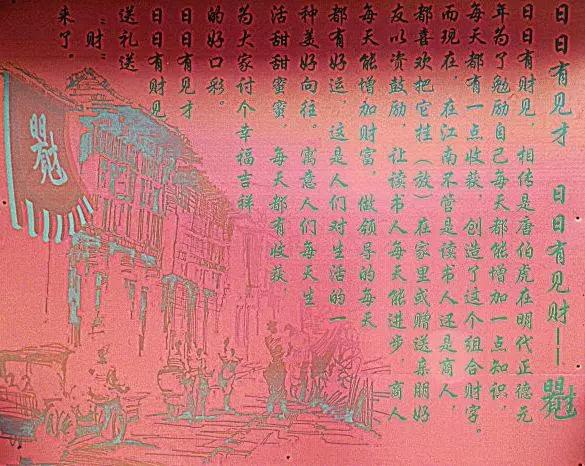 日日有見才 日日有見财——
日日有财見，相传是唐伯虎在明代正德元
年为了勉励自己每天都能增加一点知识，
每天都有一点收获，创造了这个组合财字。
而现在，在江南不管是读书人还是商人，
都喜欢把它挂（放）在家里或赠送亲朋好
友以资鼓励，让读书人每天能进步，商人
每天能增加财富，做领导的每天
都有好运，这是人们对生活的一
种美好向往。寓意人们每天生
活甜甜蜜蜜，每天都有收获，
为大家讨个幸福吉祥
的好口彩。
日日有見才
日日有财見
送礼送
“财”
来了。